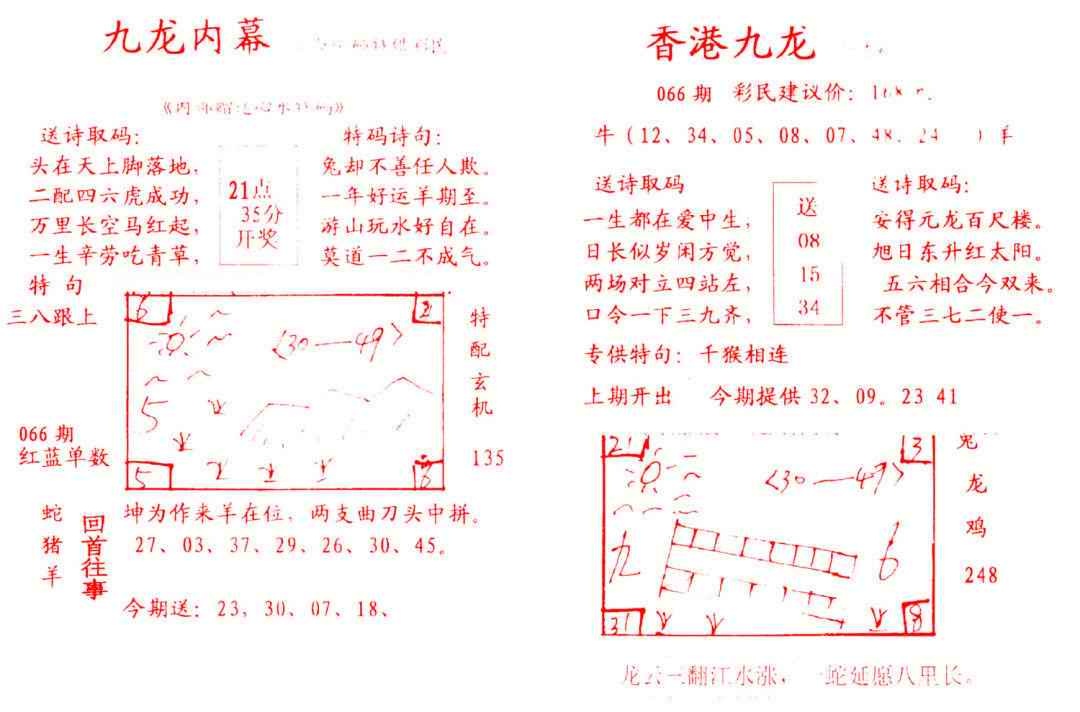 九龙内幕
送诗取码：
头在天上脚落地，
二配四六虎成功，
万里长空马红起，
一生辛劳吃青草，
21点
35分
开奖
特码诗句：
兔却不善任人欺。
一年好运羊期至。
游山玩水好自在。
莫道一二不成气。
特 句
三八跟上
066 期
红蓝单数
6
2
〈30—49〉
5
5
8
特
配
玄
机
135
蛇
猪
羊
回首往事
坤为作来羊在位，两支曲刀头中拼。
27、03、37、29、26、30、45。
今期送：23，30、07、18、
香港九龙
066 期 彩民建议价：
牛（12、34、05、08、07、48、24 ）羊
送诗取码
一生都在爱中生，
日长似岁闲方觉，
两场对立四站左，
口令一下三九齐，
送
08
15
34
送诗取码：
安得元龙百尺楼。
旭日东升红太阳。
五六相合今双来。
不管三七二使一。
专供特句：千猴相连
上期开出 今期提供 32、09。23 41
21
3
〈30—49〉
九
6
31
8
兔
龙
鸡
248
龙云三翻江水涨，一蛇延愿八里长。